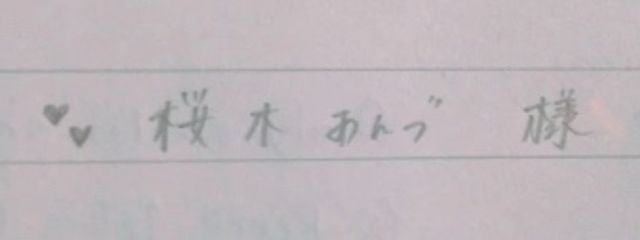 ♥♥ 桜木 あんづ 様